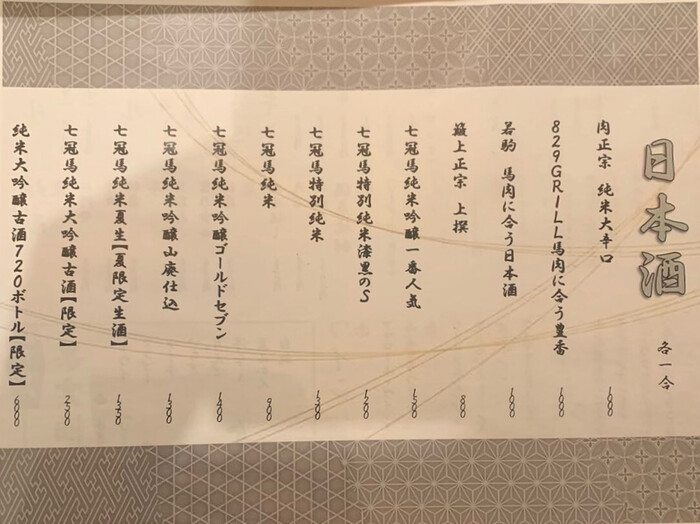 日本酒 各一合
肉正宗 純米大辛口 1000
829GRILL馬肉に合う豊香 1000
若駒 馬肉に合う日本酒 1000
簸上正宗 上撰 800
七冠馬純米吟醸一番人気
七冠馬特別純米漆黒のS 1200
七冠馬特別純米
七冠馬純米 900
七冠馬純米吟醸ゴールドセブン 1400
七冠馬純米吟醸山廃仕込
七冠馬純米夏生【夏限定生酒】
七冠馬純米大吟醸古酒【限定】
純米大吟醸古酒720ボトル【限定】 6000